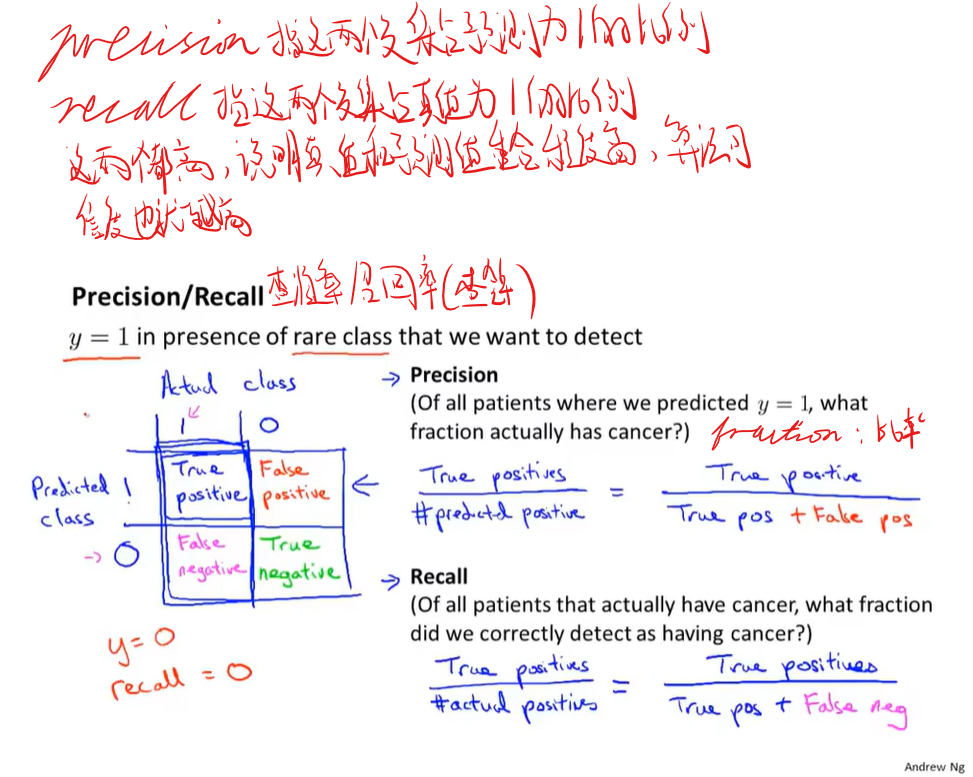 precision 指这两个交集占预测为1的的比例
recall 指这两个交集占真值为1的的比例
这两个都高，说明真值和预测值重合程度高，算法可
信度也就越高
Precision/Recall 查准率 召回率(查全率)
y = 1 in presence of rare class that we want to detect
Actual class
1 0
Predicted class
1 True positive False positive
0 False negative True negative
y=0
recall = 0
→ Precision
(Of all patients where we predicted y = 1, what
fraction actually has cancer?) fraction：比率
True positives / #predicted positive = True positive / True pos + False pos
→ Recall
(Of all patients that actually have cancer, what fraction
did we correctly detect as having cancer?)
True positives / #actual positives = True positives / True pos + False neg
Andrew Ng